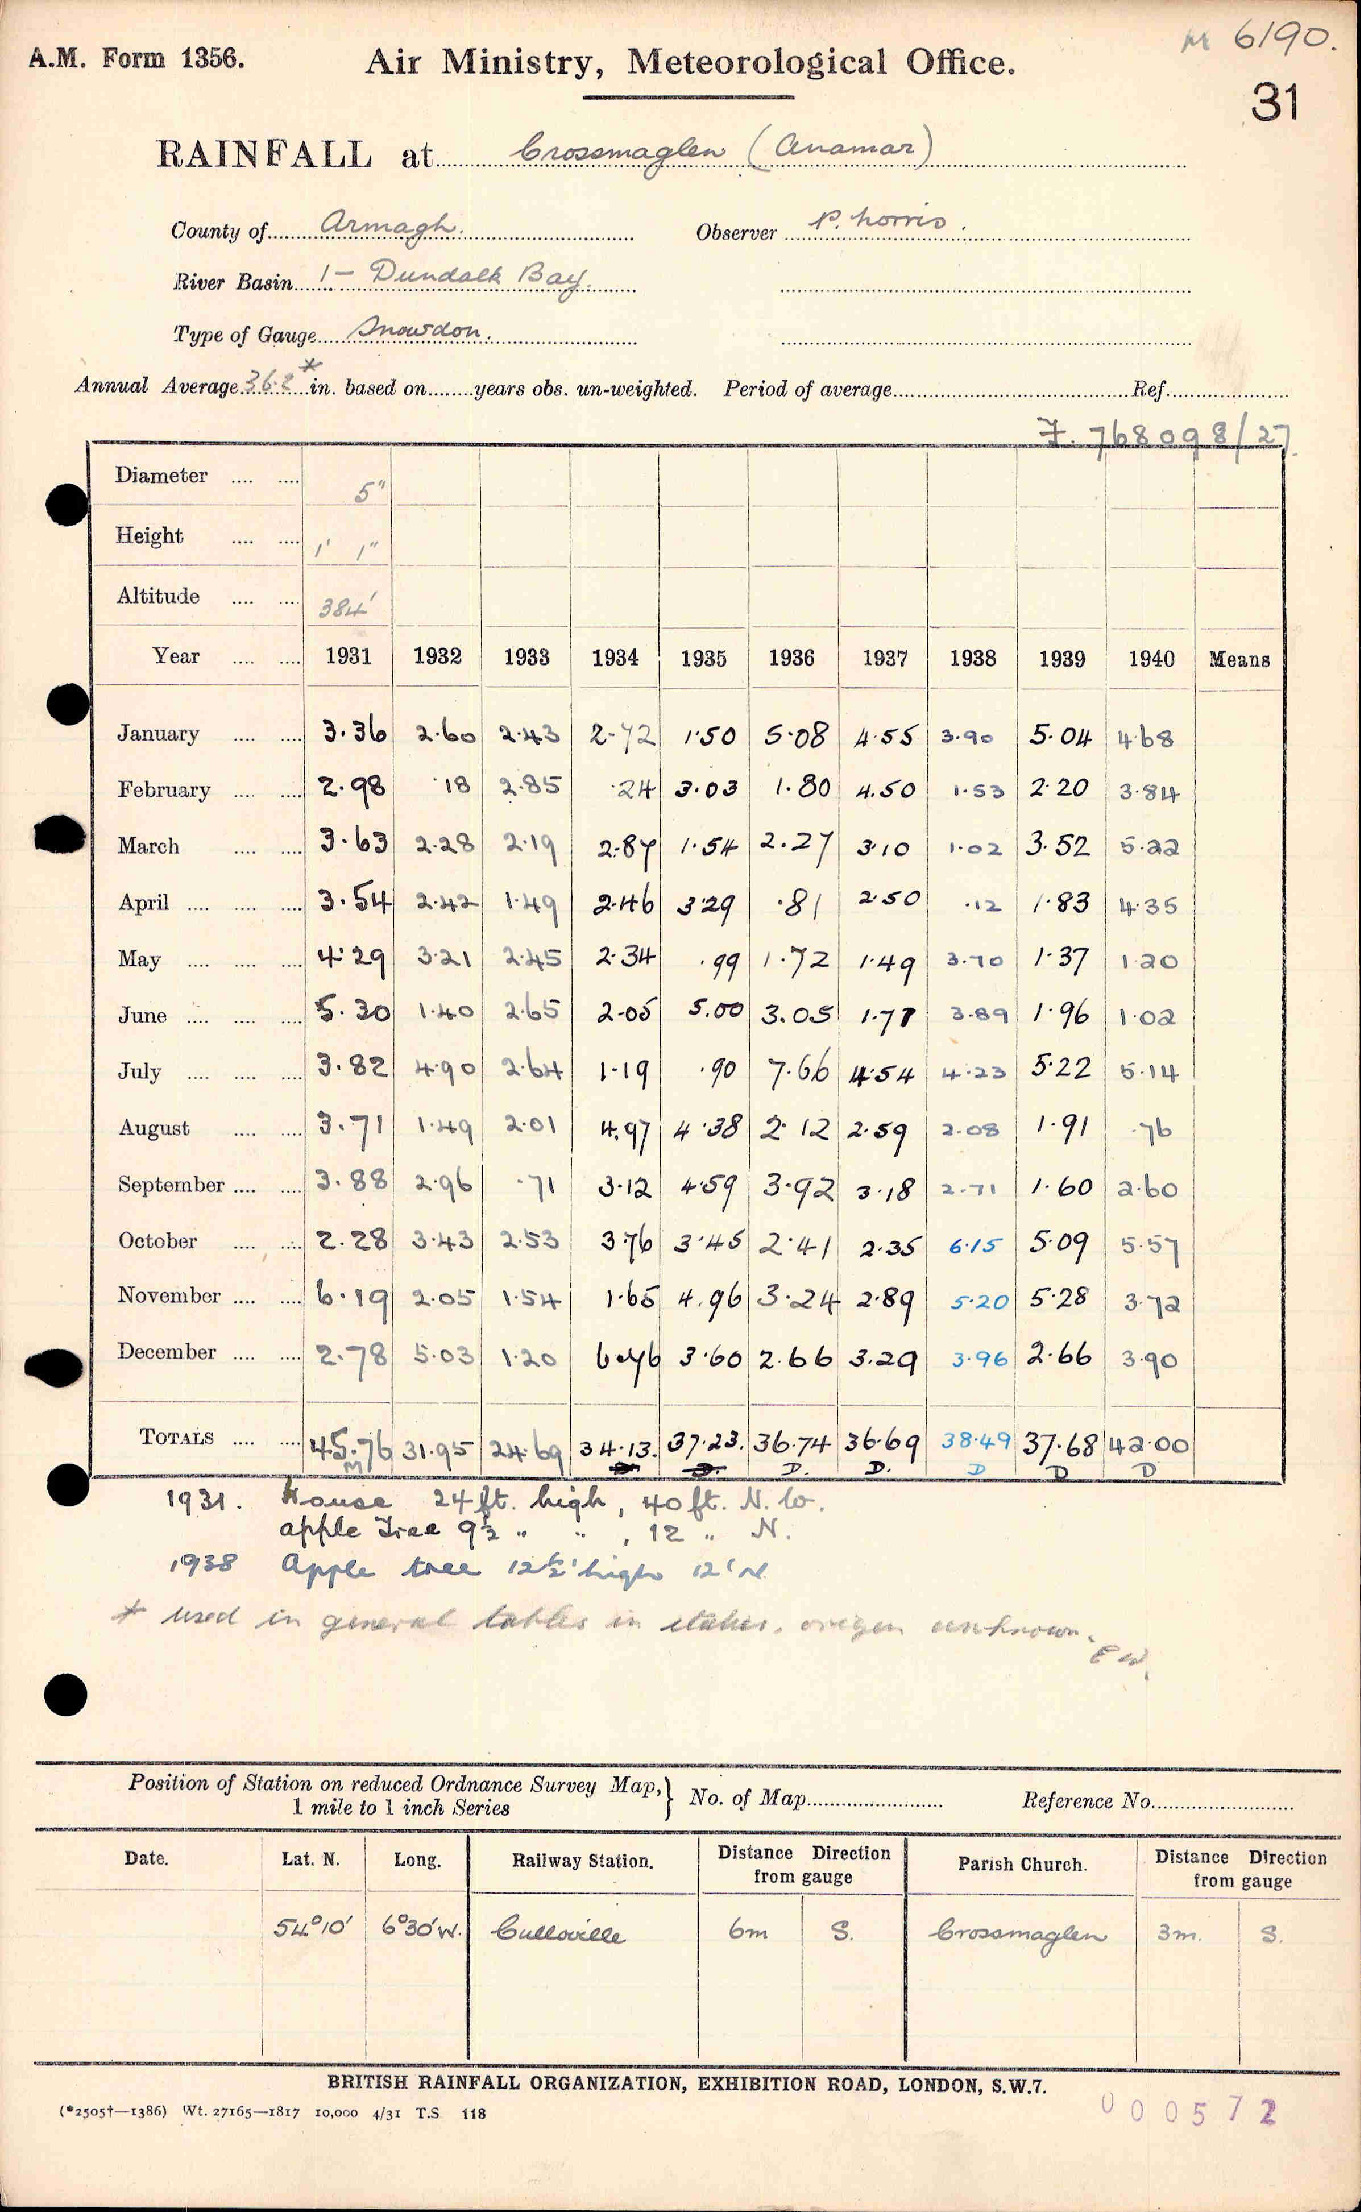 M 6190.
A.M. Form 1356. Air Ministry, Meteorological Office.
31
RAINFALL at Crossmaglen (Anamar)
County of Armagh. Observer P. Morris.
River Basin 1- Dundalk Bay.
Type of Gauge Snowdon.
Annual Average 36.2* in. based on years obs. un-weighted. Period of average Ref.
I. 768098/27
Diameter 5"
Height 1' 1"
Altitude 384'
Year 1931 1932 1933 1934 1935 1936 1937 1938 1939 1940 Means
January 3.36 2.60 2.43 2.72 1.50 5.08 4.55 3.90 5.04 4.68
February 2.98 .18 2.85 .24 3.03 1.80 4.50 1.53 2.20 3.84
March 3.63 2.28 2.19 2.87 1.54 2.27 3.10 1.02 3.52 5.22
April 3.54 2.42 1.49 2.46 3.29 .81 2.50 .12 1.83 4.35
May 4.29 3.21 2.45 2.34 .99 1.72 1.49 3.70 1.37 1.20
June 5.30 1.40 2.65 2.05 5.00 3.05 1.71 3.89 1.96 1.02
July 3.82 4.90 2.64 1.19 .90 7.66 4.54 4.23 5.22 5.14
August 3.71 1.49 2.01 4.97 4.38 2.12 2.59 2.08 1.91 .76
September 3.88 2.96 .71 3.12 4.59 3.92 3.18 2.71 1.60 2.60
October 2.28 3.43 2.53 3.76 3.45 2.41 2.35 6.15 5.09 5.57
November 6.19 2.05 1.54 1.65 4.96 3.24 2.89 5.20 5.28 3.72
December 2.78 5.03 1.20 6.76 3.60 2.66 3.29 3.96 2.66 3.90
TOTALS 45.76 31.95 24.69 34.13. 37.23. 36.74 36.69 38.49 37.68 42.00
m D. D. D. D. D D D
1931. House 24 ft. high, 40 ft. N.W.
apple Tree 9½ " " , 12 " N.
1938 Apple tree 12½' high 12' N
* used in general tables in italics, origin unknown.
E W.
Position of Station on reduced Ordnance Survey Map, 1 mile to 1 inch Series } No. of Map Reference No.
Date. Lat. N. Long. Railway Station. Distance Direction from gauge Parish Church. Distance Direction from gauge
54°10' 6°30'W. Culloville 6m S. Crossmaglen 3m. S.
BRITISH RAINFALL ORGANIZATION, EXHIBITION ROAD, LONDON, S.W.7.
(*2505†—1386) Wt. 27165—1817 10,000 4/31 T.S 118
000572